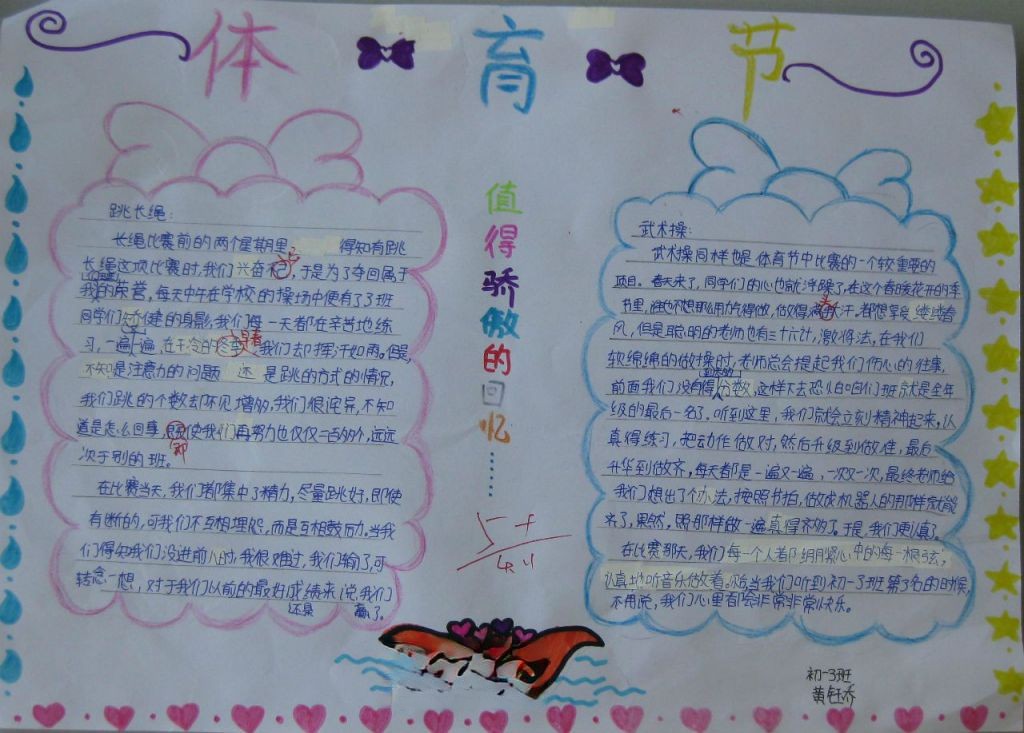 体育节
值得骄傲的回忆……
跳长绳:
长绳比赛前的两个星期里, 得知有跳
长绳这项比赛时,我们兴奋不已,于是为了夺回属于
我们的荣誉,每天中午在学校的操场中便有了3班
同学们矫健的身影,我们每一天都在辛苦地练
习,一遍一遍,在干冷的冬季,我们却挥汗如雨。但是,
不知是注意力的问题 还 是跳的方式的情况,
我们跳的个数去不见增多,我们很诧异,不知
道是怎么回事,即使我们再努力也仅仅二百多个,远远
次于别的班。
在比赛当天,我们都集中了精力,尽量跳好,即使
有断的,可我们不互相埋怨,而是互相鼓励,当我
们得知我们没进前八时,我很难过,我们输了,可
转念一想,对于我们以前的最好成绩来说,我们
还是 赢了。
武术操:
武术操同样也是体育节中比赛的一个较重要的
项目。春天来了,同学们的心也就浮躁了,在这个春暖花开的季
节里,谁也不想那么用力得做,做得满身大汗,都想享受
风,但是聪明的老师也有三十六计,激将法,在我们
软绵绵的做操时,老师总会提起我们伤心的往事,
前面我们没有得分数,这样下去恐怕咱们班就是全年
级的最后一名了。听到这里,我们就会立刻精神起来,认
真得练习,把动作做对,然后升级到做准,最后
升华到做齐,每天都是一遍又一遍、一次又一次,最终老师给
我们想出了个办法,按照书拍,做成机器人的那样就能
齐了,果然,照那样做一遍真得齐多了。于是,我们更认真了。
在比赛那天,我们每一个人都绷紧心中的每一根弦,
认真地听音乐做着。当我们听到初一3班第3名的时候,
不用说,我们心里都会非常非常快乐。
初一3班
黄钰乔